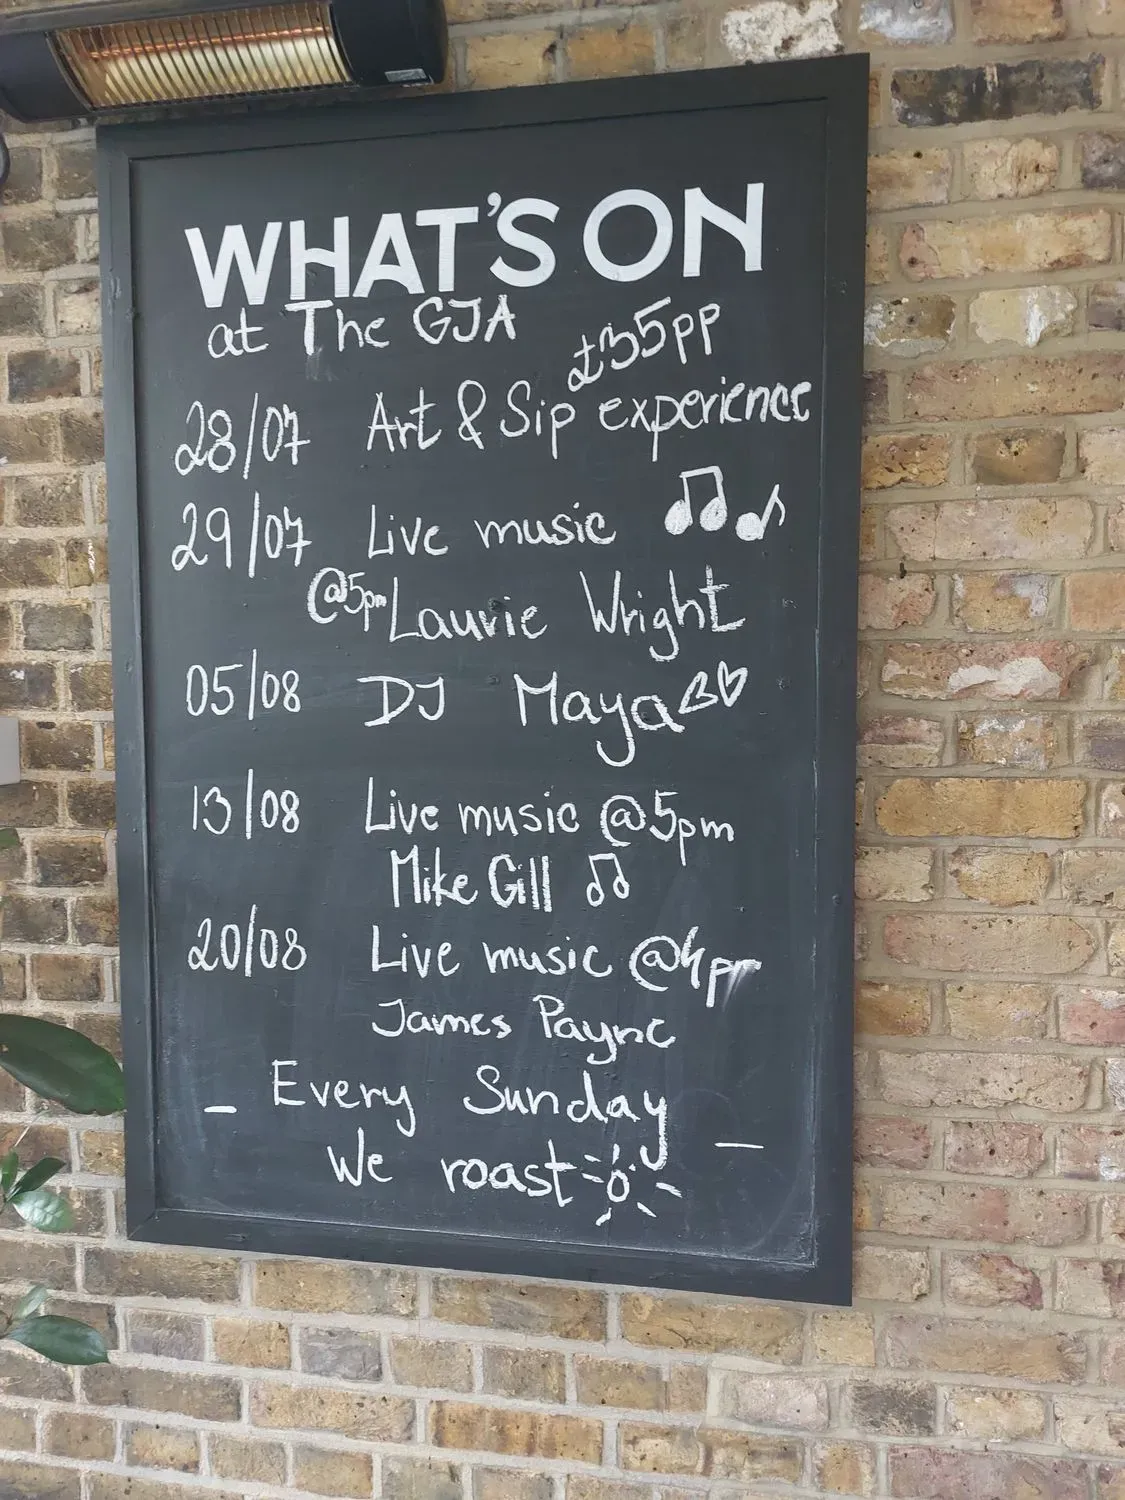 WHAT'S ON
at The GJA
£35pp
28/07 Art & Sip experience
29/07 Live music
@5pm Laurie Wright
05/08 DJ Maya
13/08 Live music @5pm
Mike Gill
20/08 Live music @4pm
James Payne
- Every Sunday -
We roast